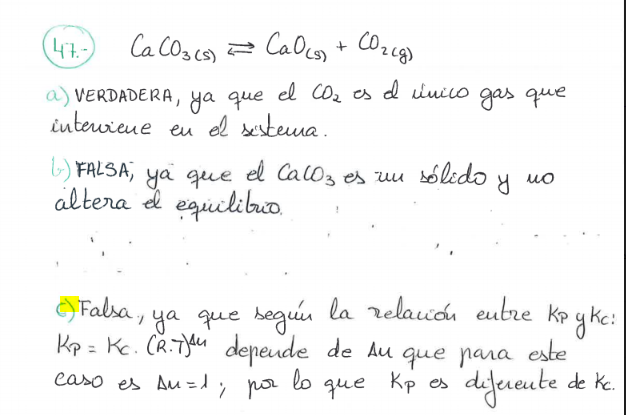 47.- CaCO₃(s) ⇄ CaO(s) + CO₂(g)
a) VERDADERA, ya que el CO₂ es el único gas que
interviene en el sistema.
b) FALSA, ya que el CaCO₃ es un sólido y no
altera el equilibrio.
c) Falsa, ya que según la relación entre Kp y Kc:
Kp = Kc. (R.T)^Δn depende de Δn que para este
caso es Δn = 1; por lo que Kp es diferente de Kc.